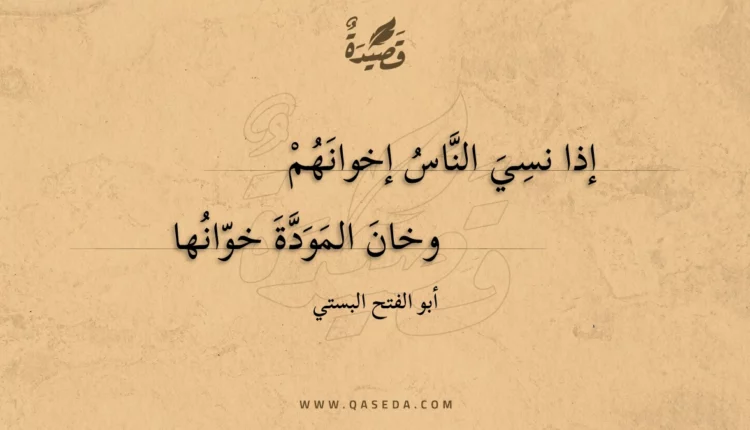 قَصِيدَةٌ
إذا نسِيَ النَّاسُ إخوانَهُمْ
وخانَ المَوَدَّةَ خوّانُها
أبو الفتح البستي
WWW.QASEDA.COM